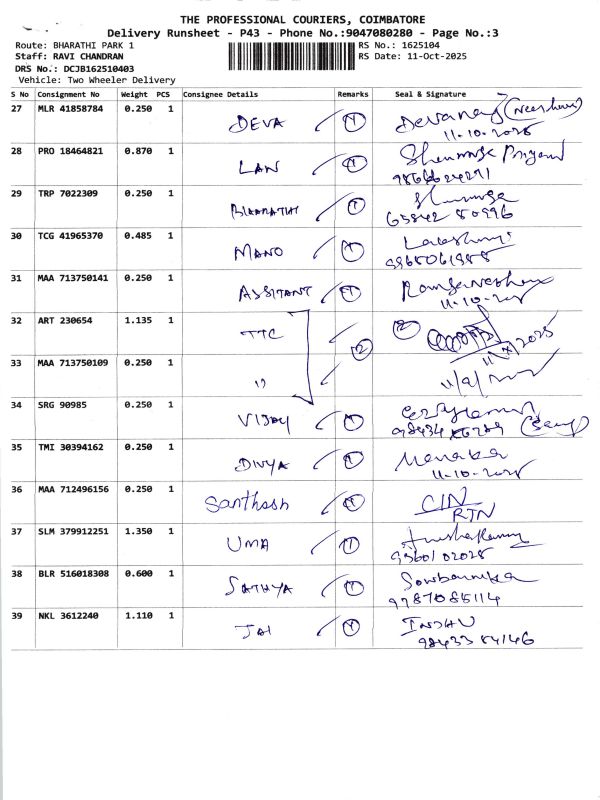 THE PROFESSIONAL COURIERS, COIMBATORE
Delivery Runsheet - P43 - Phone No.:9047080280 - Page No.:3
Route: BHARATHI PARK 1 RS No.: 1625104
Staff: RAVI CHANDRAN RS Date: 11-Oct-2025
DRS No.: DCJB162510403
Vehicle: Two Wheeler Delivery
S No Consignment No Weight PCS Consignee Details Remarks Seal & Signature
27 MLR 41858784 0.250 1 DEVA 1
11-10-2025
28 PRO 18464821 0.870 1 LAN 1
29 TRP 7022309 0.250 1 BHARATHI 1
30 TCG 41965370 0.485 1 MANO 1
31 MAA 713750141 0.250 1 ASSITANT 1
11-10-2025
32 ART 230654 1.135 1 TTC 2 2
33 MAA 713750109 0.250 1 "
34 SRG 90985 0.250 1 VIJAY 1
35 TMI 30394162 0.250 1 DIVYA 1 Menaka
11-10-2025
36 MAA 712496156 0.250 1 Santhosh 1 CIN
RTN
37 SLM 379912251 1.350 1 UMA 1
9360102028
38 BLR 516018308 0.600 1 SATHYA 1 Sowbarnika
9787085114
39 NKL 3612240 1.110 1 JAI 1 INDHU
98433 84146